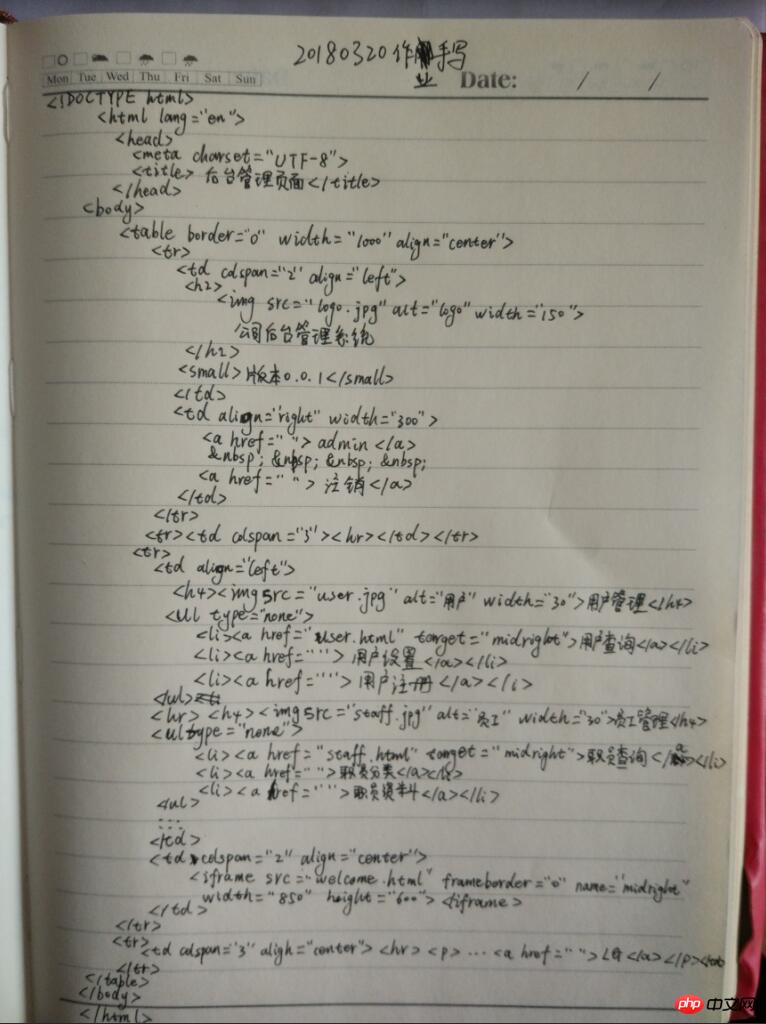 20180320作业手写
Mon Tue Wed Thu Fri Sat Sun
Date: / /
<!DOCTYPE html>
<html lang="en">
<head>
<meta charset="UTF-8">
<title> 后台管理页面</title>
</head>
<body>
<table border="0" width="1000" align="center">
<tr>
<td colspan="2" align="left">
<h2>
<img src="logo.jpg" alt="logo" width="150">
公司后台管理系统
</h2>
<small>版本0.0.1</small>
</td>
<td align="right" width="300">
<a href=" "> admin </a>
&nbsp; &nbsp; &nbsp; &nbsp;
<a href=" "> 注销</a>
</td>
</tr>
<tr><td colspan="3"><hr></td></tr>
<tr>
<td align="left">
<h4><img src="user.jpg" alt="用户" width="30">用户管理</h4>
<ul type="none">
<li><a href="user.html" target="midright">用户查询</a></li>
<li><a href=" "> 用户设置</a></li>
<li><a href=" "> 用户注册</a></li>
</ul>
<hr> <h4><img src="staff.jpg" alt="员工" width="30">员工管理</h4>
<ul type="none">
<li><a href="staff.html" target="midright">职员查询</a></li>
<li><a href=" ">职员分类</a></li>
<li><a href=" ">职员资料</a></li>
</ul>
...
</td>
<td colspan="2" align="center">
<iframe src="welcome.html" frameborder="0" name="midright"
width="850" height="600"> <iframe>
</td>
</tr>
<tr>
<td colspan="3" align="center"> <hr> <p> ... <a href=" "> </a></p>
</tr>
</table>
</body>
</html>
php 中文网